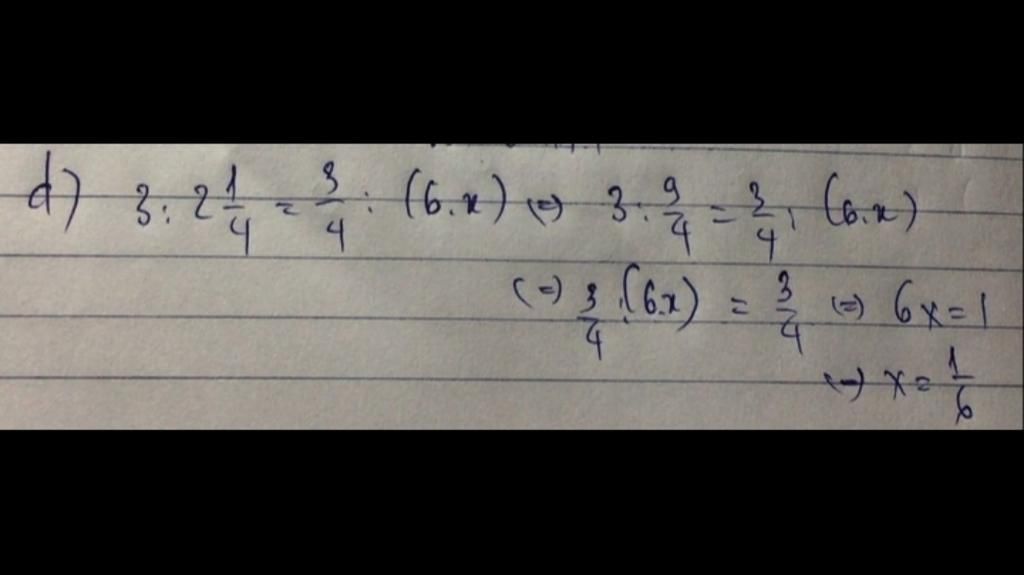 d) 3 : 2 1/4 = 3/4 : (6.x) (=) 3 : 9/4 = 3/4 : (6.x)
(=) 3/4 : (6.x) = 3/4 (=) 6x = 1
(=) x = 1/6